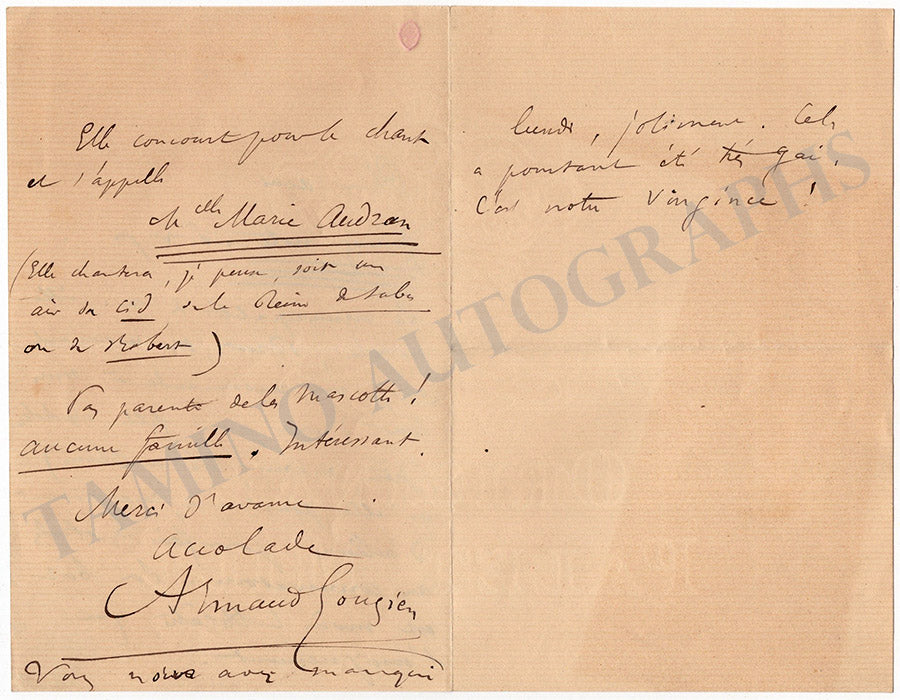 Elle concourt pour le chant
et s'appelle
Mlle Marie Audran
(Elle chantera, je pense, soit un
air du Cid de la Reine de Saba
ou de Robert)
Pas parente de la Mascotte !
aucune famille. Intéressant.
Merci d'avance
Accolade
Armand Gouzien
Vous nous avez manqué
lundi, joliment. Cela
a pourtant été très gai.
C'est notre !
TAMINO AUTOGRAPHS